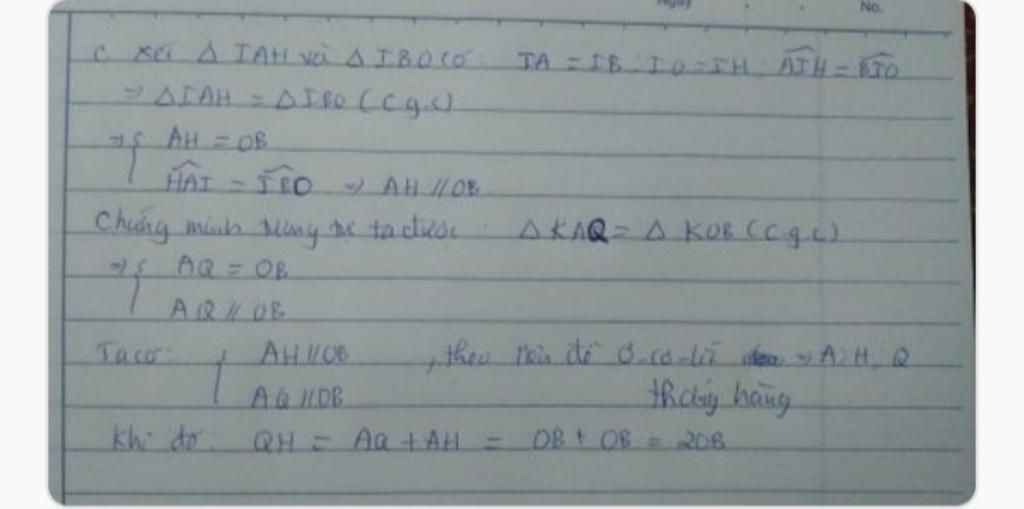 No.
C. Xét Δ IAH và Δ IBO có: IA = IB; IO = IH; AIH = BIO
⇒ ΔIAH = ΔIBO (c.g.c)
⇒ { AH = OB
HAI = IBO ⇒ AH // OB
Chứng minh tương tự ta được: Δ KAQ = Δ KOB (c.g.c)
⇒ { AQ = OB
AQ // OB
Ta có: { AH // OB , theo tiên đề Ơ-cơ-lít ⇒ A, H, Q
AQ // OB thẳng hàng
Khi đó: QH = AQ + AH = OB + OB = 2OB